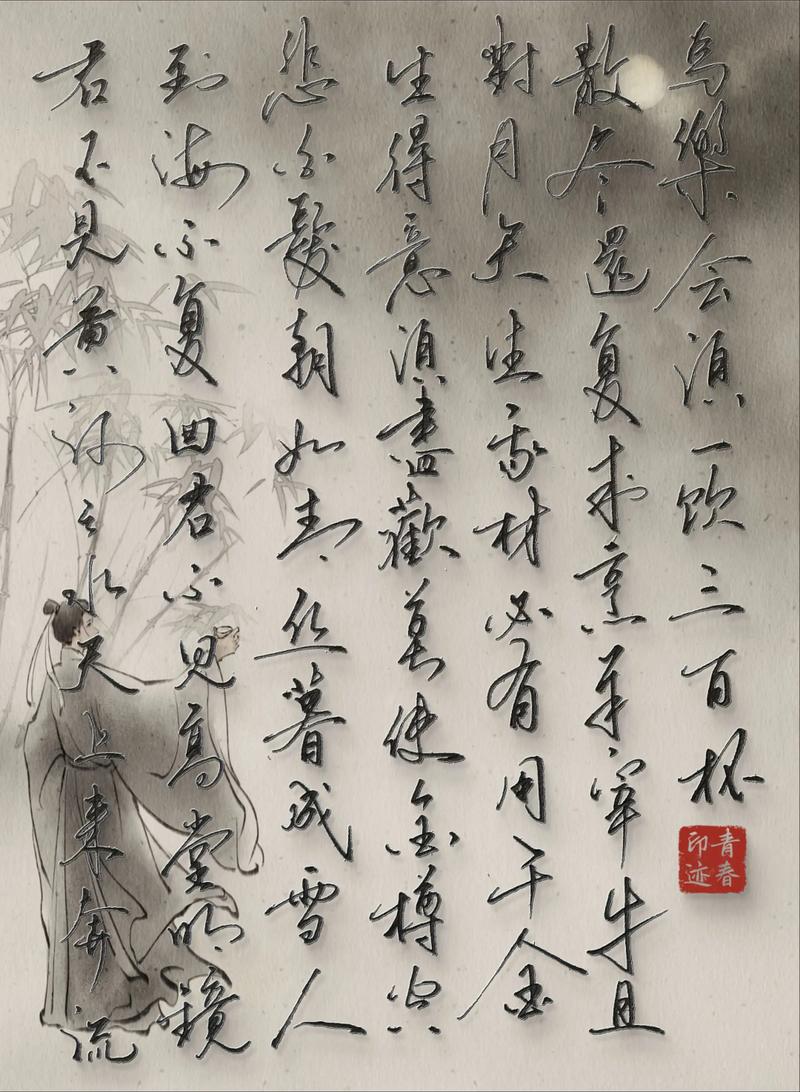 君不見黄河之水天上来奔流
到海不复回君不見高堂明鏡
悲白髮朝如青丝暮成雪人
生得意須盡歡莫使金樽空
對月天生我材必有用千金
散尽還复来烹羊宰牛且
為樂会須一饮三百杯
青春印迹